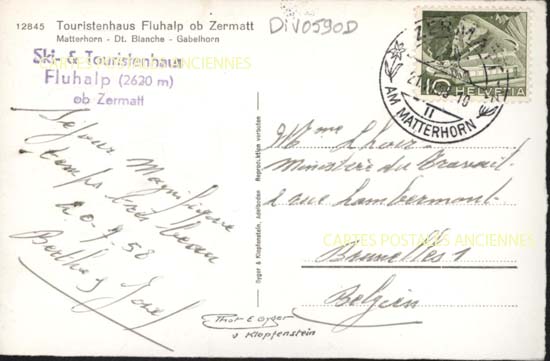 12845 Touristenhaus Fluhalp ob Zermatt
Matterhorn - Dt. Blanche - Gabelhorn
Ski- & Touristenhaus
Fluhalp (2620 m)
ob Zermatt
DIV0590D
CARTES POSTALES ANCIENNES
ZERMATT
AM MATTERHORN
10 HELVETIA
Séjour Magnifique
temps très beau
20-9-58
Berthe & José
Gyger & Klopfenstein, Adelboden Reproduktion verboten
Mme
Ministère du Travail
2 rue Lambermont
CARTES POSTALES ANCIENNES
Bruxelles 1
Belgien
Phot E Gyger
& Klopfenstein